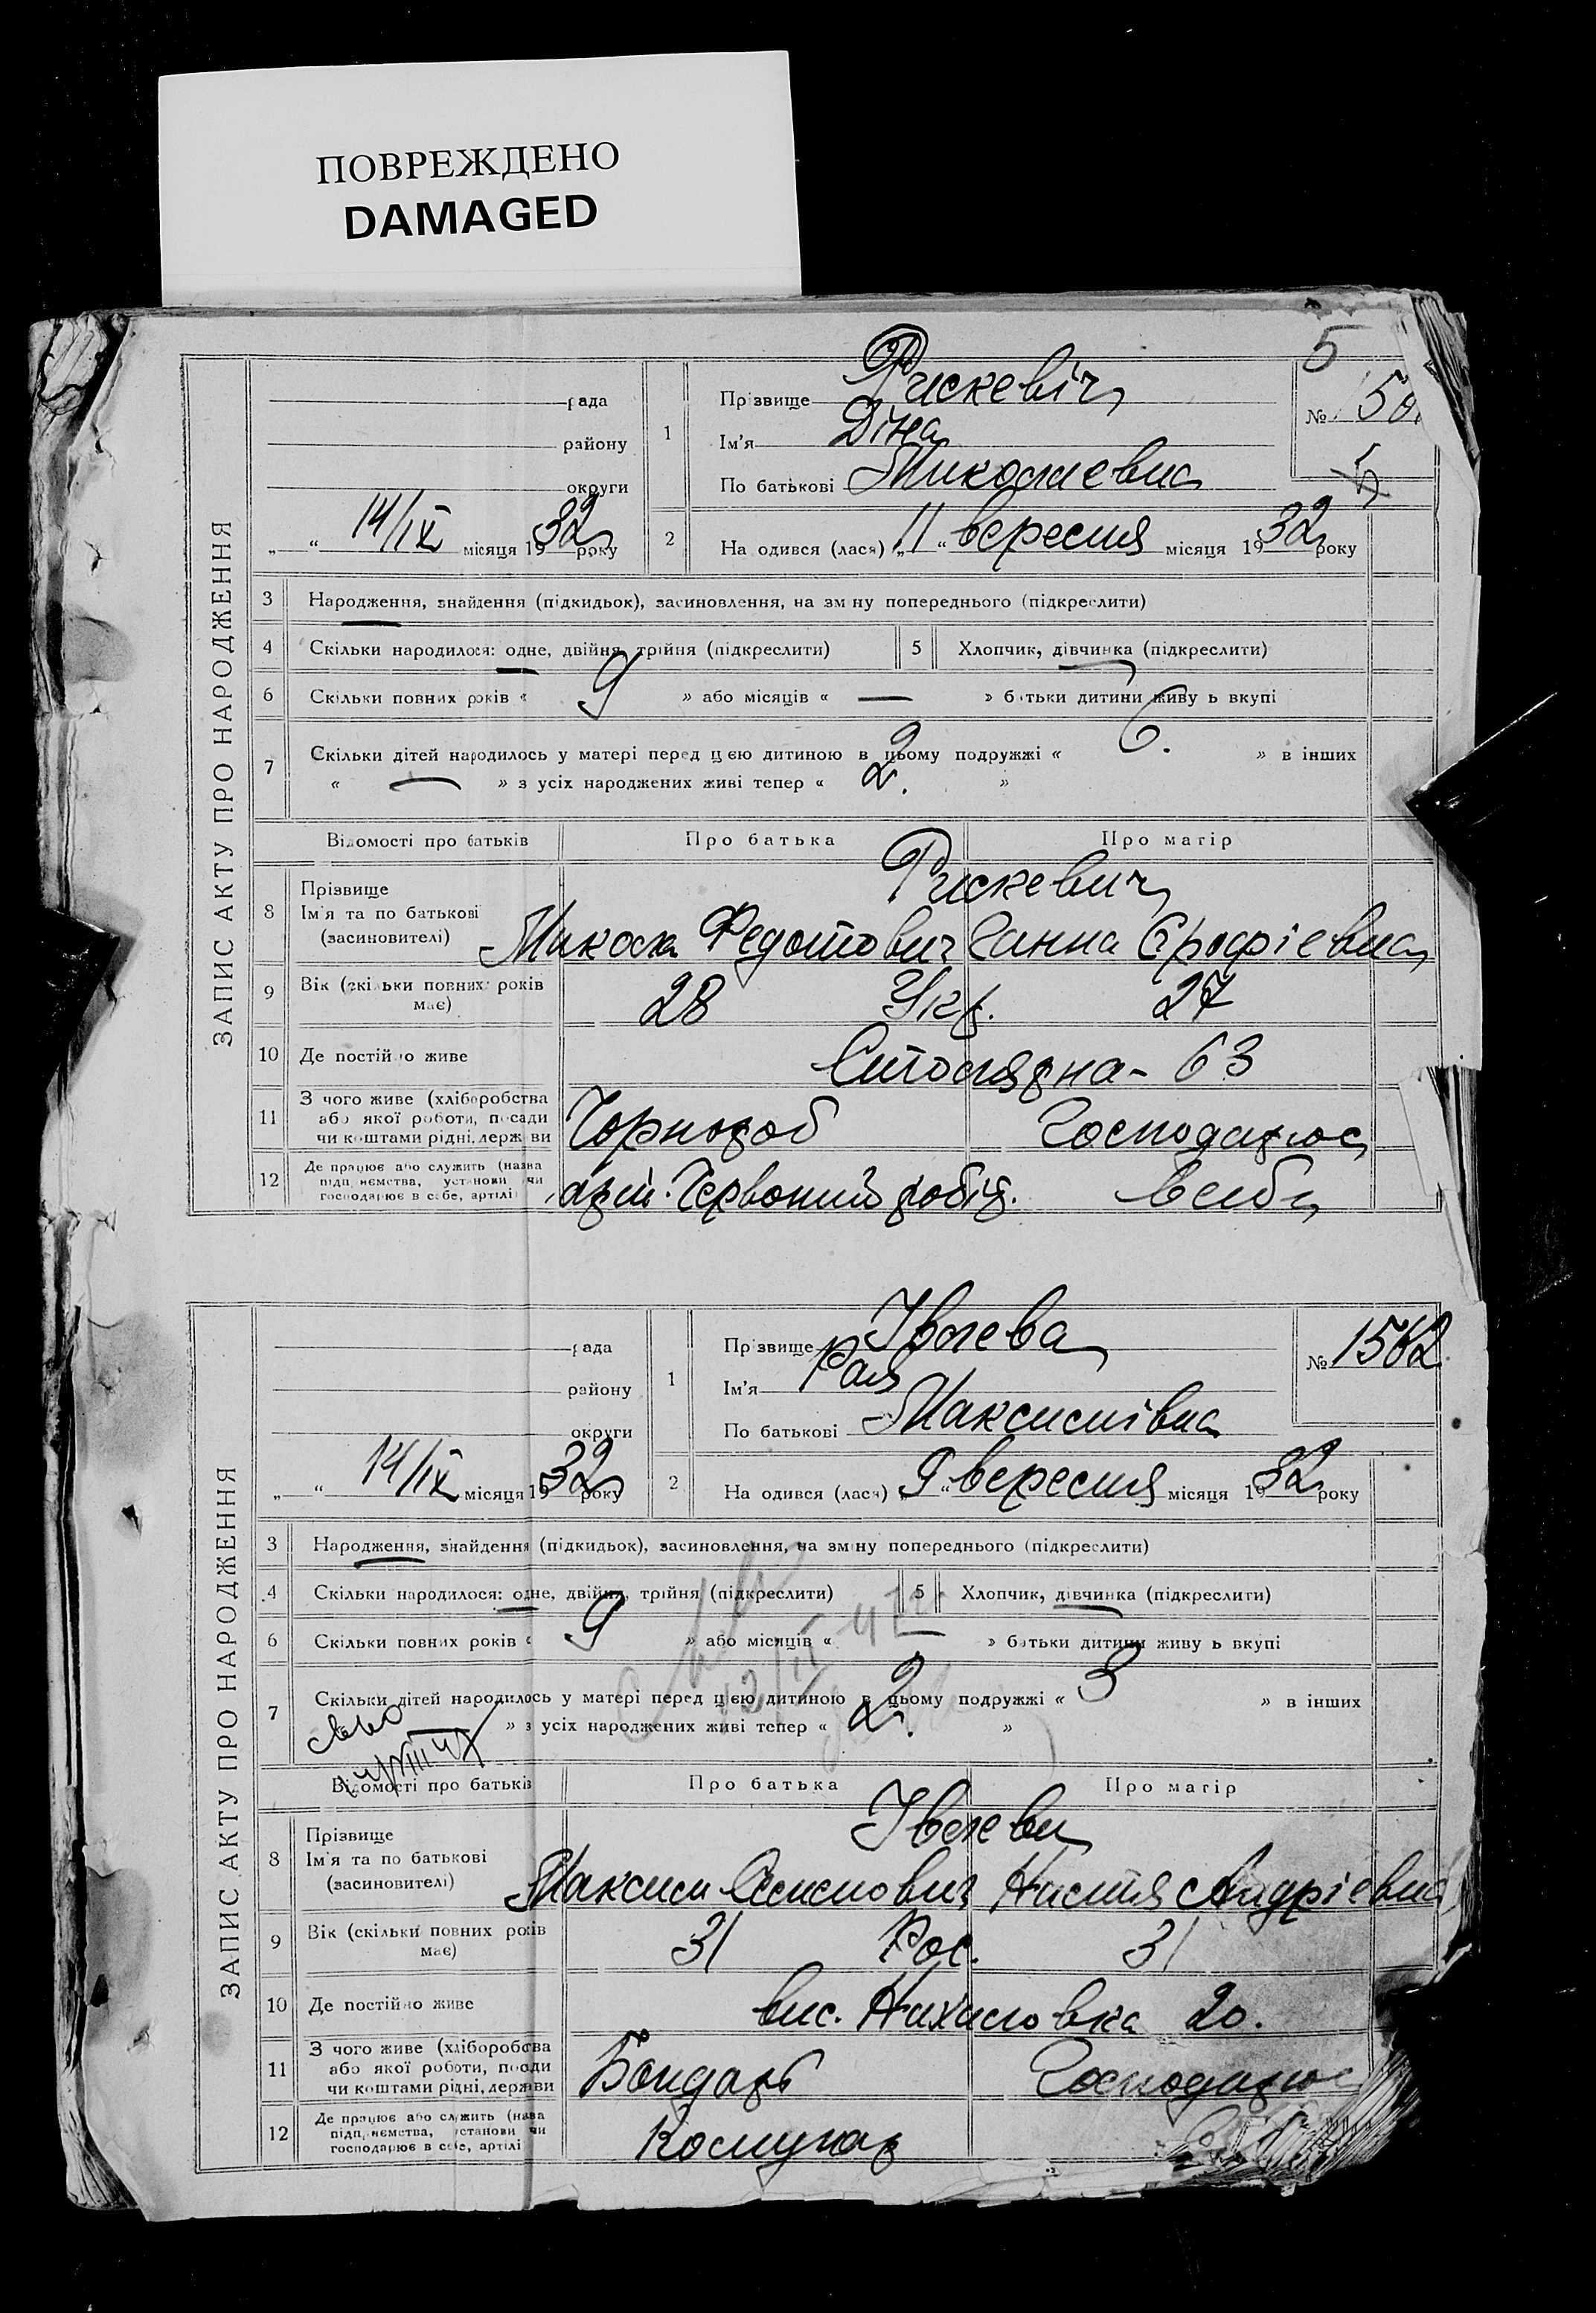 ПОВРЕЖДЕНО
DAMAGED
5
ЗАПИС АКТУ ПРО НАРОДЖЕННЯ
рада
району
округи
„ “ 14/IX місяця 1932 року
1
Прізвище Рискевіч
Ім'я Діна
По батькові Миколаевна
№
2
На одився (лася) „11“ вересня місяця 1932 року
3 Народження, знайдення (підкидьок), засиновлення, на зміну попереднього (підкреслити)
4 Скільки народилося: одне, двійня, трійня (підкреслити) 5 Хлопчик, дівчинка (підкреслити)
6 Скільки повних років « 9 » або місяців « — » батьки дитини живу ь вкупі
7 Скільки дітей народилось у матері перед цією дитиною в цьому подружжі « » в інших
« — » з усіх народжених живі тепер « 2. »
Відомості про батьків Про батька Про матір
8 Прізвище Рискевич
Ім'я та по батькові Микола Федотович Ганна
(засиновителі)
9 Вік (скільки повних років має) 28 Укр. 27
10 Де постійно живе 63
11 З чого живе (хліборобства або якої роботи, посади чи коштами рідні, держави Чорнороб Господарює
12 Де працює або служить (назва підприємства, установи чи господарює в себе, артілі Червоний робіт.
ЗАПИС АКТУ ПРО НАРОДЖЕННЯ
рада
району
округи
„ “ 14/IX місяця 1932 року
1
Прізвище Івлева
Ім'я Рая
По батькові Максимівна
№ 1562
2
На одився (лася) „9“ вересня місяця 1932 року
3 Народження, знайдення (підкидьок), засиновлення, на зміну попереднього (підкреслити)
4 Скільки народилося: одне, двійня, трійня (підкреслити) 5 Хлопчик, дівчинка (підкреслити)
6 Скільки повних років « 9 » або місяців « » батьки дитини живу ь вкупі
7 Скільки дітей народилось у матері перед цією дитиною в цьому подружжі « 3 » в інших
« — » з усіх народжених живі тепер « 2. »
Відомості про батьків Про батька Про матір
8 Прізвище Івлеви
Ім'я та по батькові Максим Настя Андріевна
(засиновителі)
9 Вік (скільки повних років має) 31 Рос. 31
10 Де постійно живе вис. Нахаловка 20.
11 З чого живе (хліборобства або якої роботи, посади чи коштами рідні, держави Бондарь Господарює
12 Де працює або служить (назва підприємства, установи чи господарює в себе, артілі Комунар